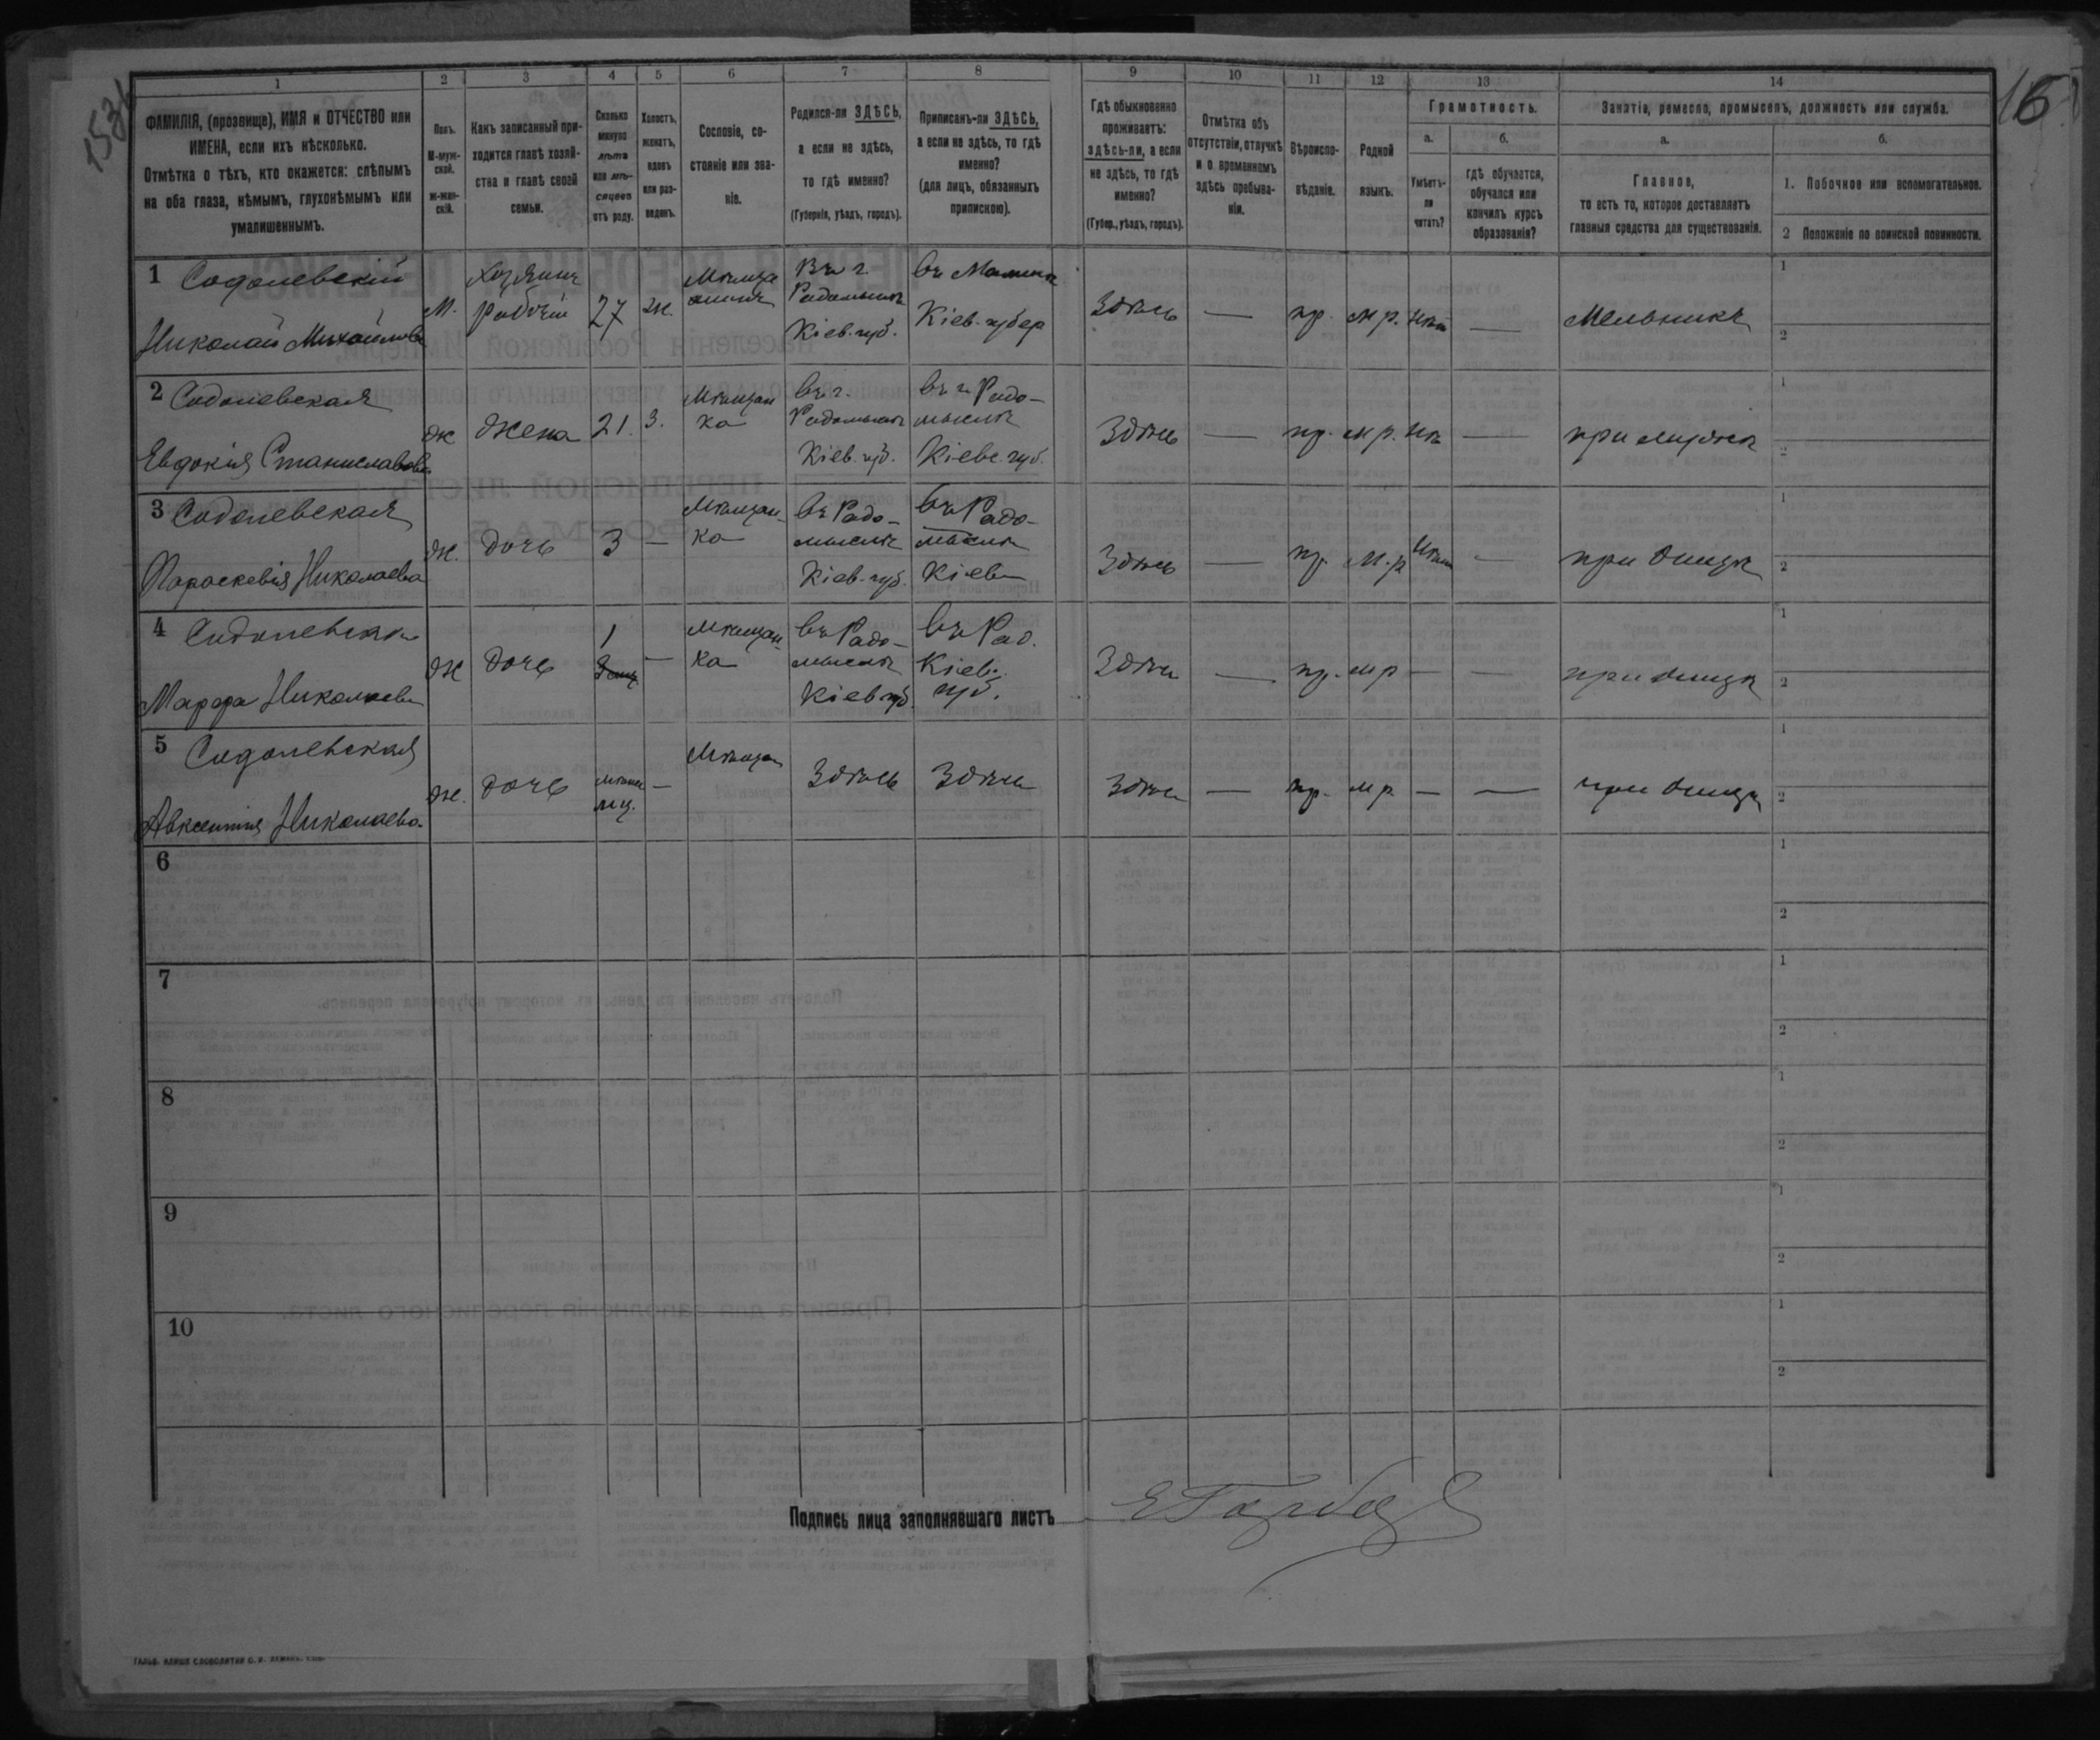 153
16
1 2 3 4 5 6 7 8 9 10 11 12 13 14
ФАМИЛІЯ, (прозвище), ИМЯ и ОТЧЕСТВО или
ИМЕНА, если ихъ нѣсколько.
Отмѣтка о тѣхъ, кто окажется: слѣпымъ
на оба глаза, нѣмымъ, глухонѣмымъ или
умалишеннымъ.
Полъ.
М-муж-
ской.
Ж-жен-
скій.
Какъ записанный при-
ходится главѣ хозяй-
ства и главѣ своей
семьи.
Сколько
минуло
лѣтъ
или мѣ-
сяцевъ
отъ роду.
Холостъ,
женатъ,
вдовъ
или раз-
веденъ.
Сословіе, со-
стояніе или зва-
ніе.
Родился-ли ЗДѢСЬ,
а если не здѣсь,
то гдѣ именно?
(Губернія, уѣздъ, городъ).
Приписанъ-ли ЗДѢСЬ,
а если не здѣсь, то гдѣ
именно?
(для лицъ, обязанныхъ
припискою).
Гдѣ обыкновенно
проживаетъ:
здѣсь-ли, а если
не здѣсь, то гдѣ
именно?
(Губер., уѣздъ, городъ).
Отмѣтка объ
отсутствіи, отлучкѣ
и о временномъ
здѣсь пребыва-
ніи.
Вѣроиспо-
вѣданіе.
Родной
языкъ.
Грамотность.
а.
Умѣетъ-
ли
читать?
б.
гдѣ обучается,
обучался или
кончилъ курсъ
образованія?
Занятіе, ремесло, промыселъ, должность или служба.
а.
Главное,
то есть то, которое доставляетъ
главныя средства для существованія.
б.
1. Побочное или вспомогательное.
2 Положеніе по воинской повинности.
1 Содолевскій
Николай Михайлов
М.
Хозяинъ
рабочій
27
ж.
Въ г.
Радомыслѣ
Кіев. губ.
въ Малинѣ
Кіев. губер
Здѣсь — пр. м р. нѣт — Мельникъ
1
2
2 Содолевская
Евдокія Станиславова
ж жена 21. з.
Мѣщан
ка
въ г.
Радомыслѣ
Кіев. губ.
въ г. Радо-
мыслѣ
Кіевс. губ.
Здѣсь — пр. м р. нѣ — при мужѣ
1
2
3 Содолевская
Параскевія Николаева
ж. дочь 3 —
Мѣщан-
ка
въ Радо-
мыслѣ
Кіев. губ.
въ Радо-
мыслѣ
Кіев
Здѣсь — пр. м. р нѣт — при отцѣ
1
2
4 Содолевская
Марфа Николаева
ж дочь 1 —
Мѣщан-
ка
въ Радо-
мыслѣ
Кіев. губ.
въ Рад.
Кіев.
губ.
Здѣсь — пр. м р — — при отцѣ
1
2
5 Содолевская
Авксентія Николаева.
ж. дочь
мц.
—
Мѣщан
Здѣсь Здѣсь Здѣсь — пр. м р — — при отцѣ
1
2
6
1
2
7
1
2
8
1
2
9
1
2
10
1
2
Подпись лица заполнявшаго листъ